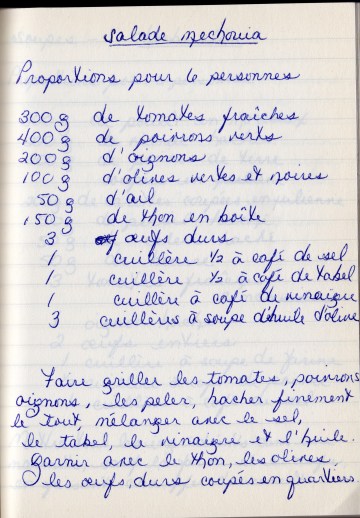 salade mechouia
Proportions pour 6 personnes
300g de tomates fraîches
400g de poivrons verts
200g d'oignons
100g d'olives vertes et noires
50g d'ail
150g de thon en boîte
3 œufs durs
1 cuillère ½ à café de sel
1 cuillère ½ à café de tabel
1 cuillère à café de vinaigre
3 cuillères à soupe d'huile d'olive
Faire griller les tomates, poivrons
oignons, les peler, hacher finement
le tout, mélanger avec le sel,
le tabel, le vinaigre et l'huile.
Garnir avec le thon, les olives,
les œufs, durs coupés en quartiers.